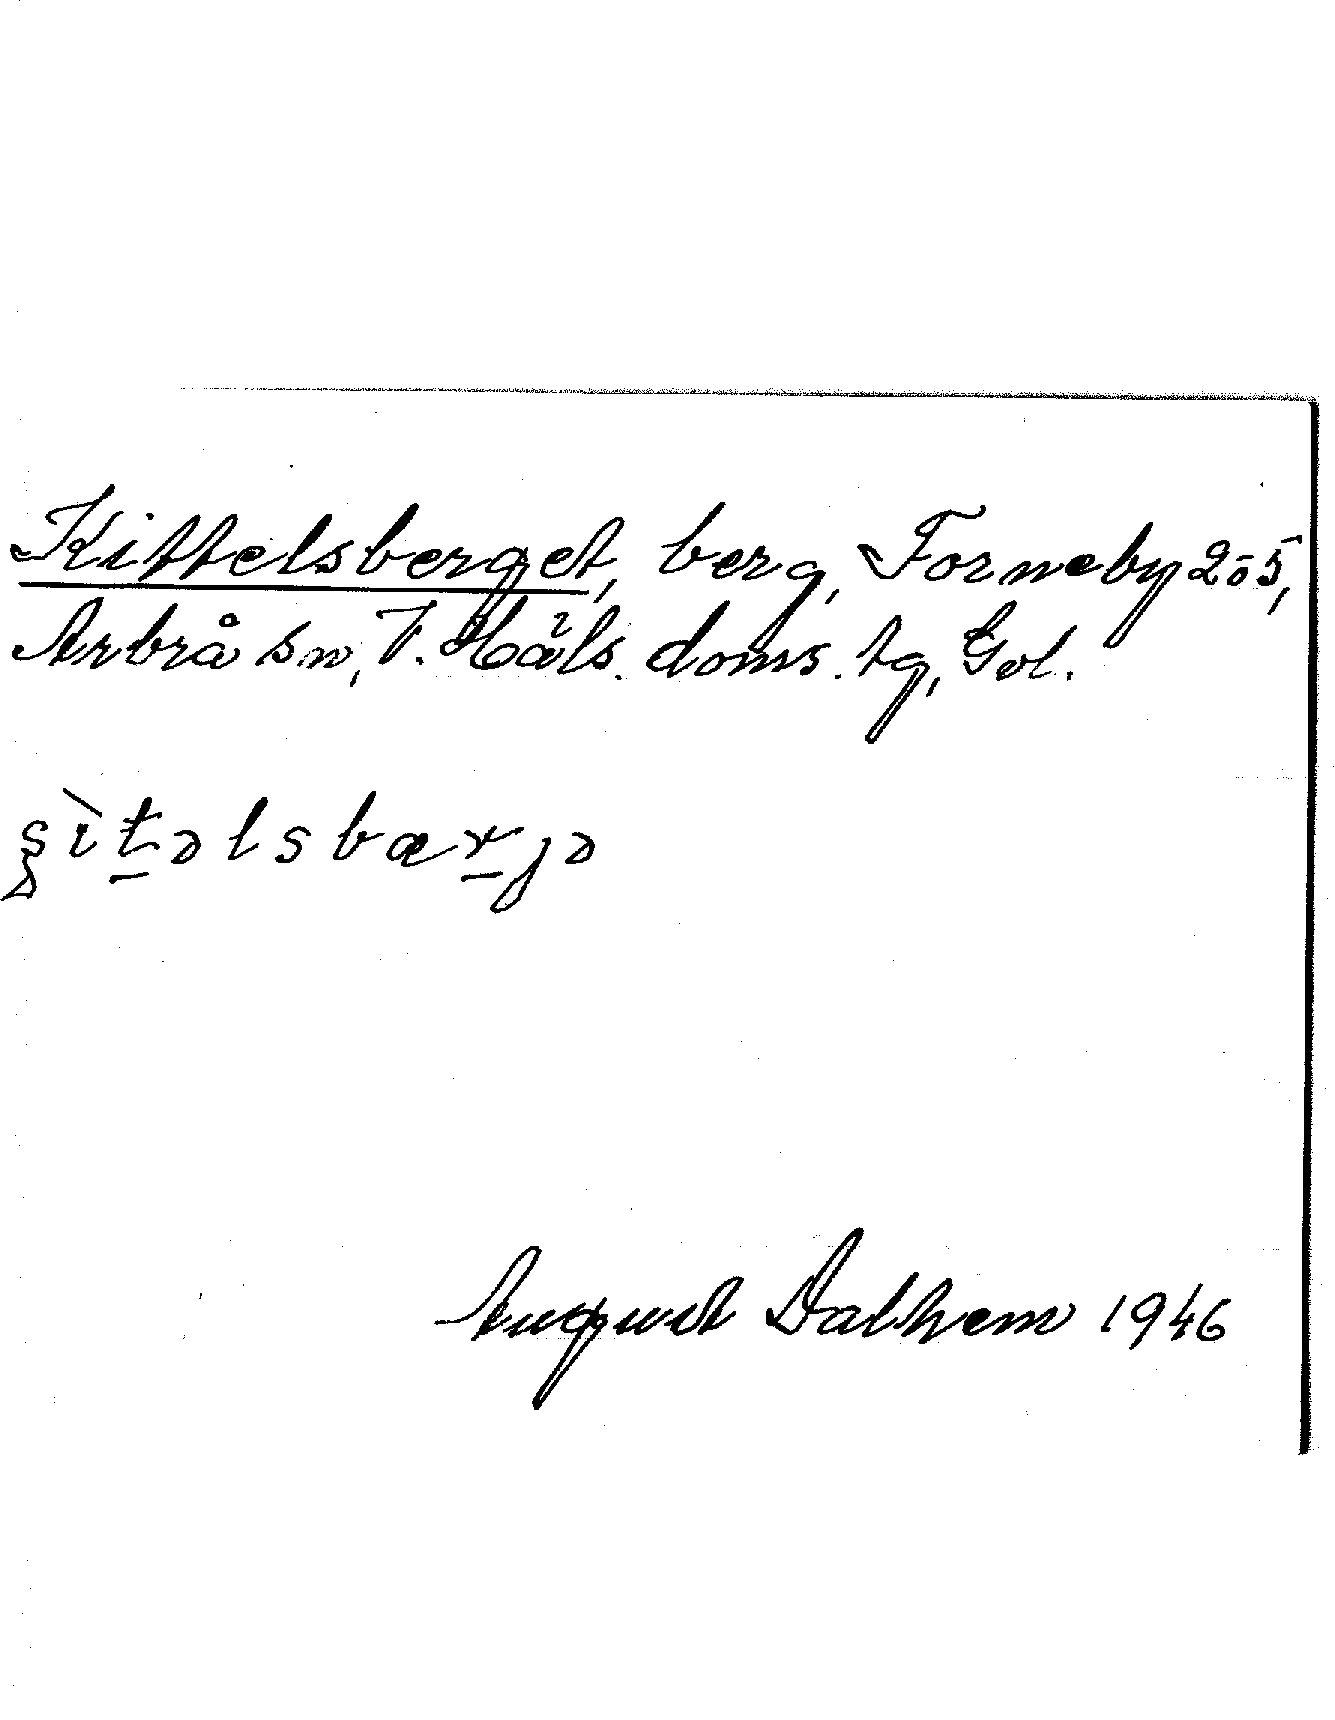 Kittelsberget, berg, Forneby 2 o 5,
Arbrå sn, V. Häls. doms. tg, Gvl.
ʂìt̠əlsbær̠jə
August Dalhem 1946